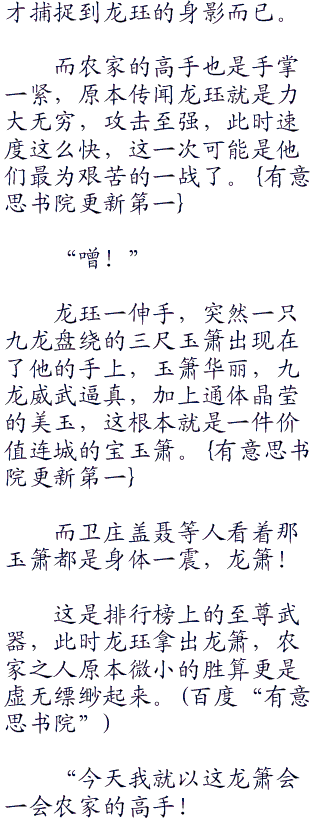 才捕捉到龙珏的身影而已。
而农家的高手也是手掌
一紧，原本传闻龙珏就是力
大无穷，攻击至强，此时速
度这么快，这一次可能是他
们最为艰苦的一战了。{有意
思书院更新第一}
“噌！”
龙珏一伸手，突然一只
九龙盘绕的三尺玉箫出现在
了他的手上，玉箫华丽，九
龙威武逼真，加上通体晶莹
的美玉，这根本就是一件价
值连城的宝玉箫。{有意思书
院更新第一}
而卫庄盖聂等人看着那
玉箫都是身体一震，龙箫！
这是排行榜上的至尊武
器，此时龙珏拿出龙箫，农
家之人原本微小的胜算更是
虚无缥缈起来。(百度“有意
思书院”)
“今天我就以这龙箫会
一会农家的高手！